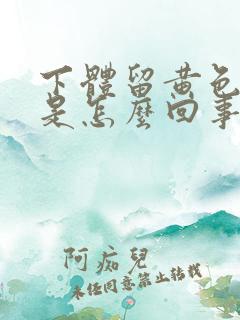 下體留黃色
是怎麼回事
阿痴兒
未经同意禁止转载